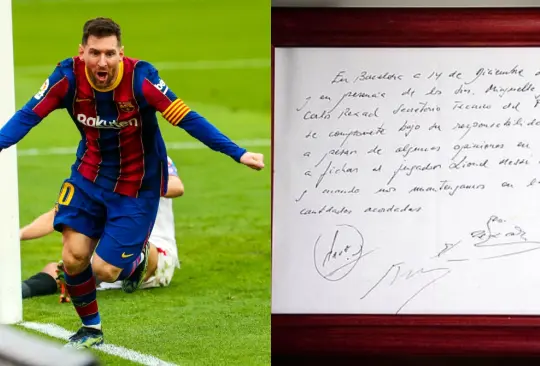 Rakuten
10
En Barcelona a 14 de diciembre d
y en presencia de los Srs. Minguella
Carlos Rexach Secretario Técnico del F
se compromete bajo su responsabilidad
a pesar de algunas opiniones en
a fichar al jugador Lionel Messi
y cuando nos mantengamos en la
cantidades acordadas